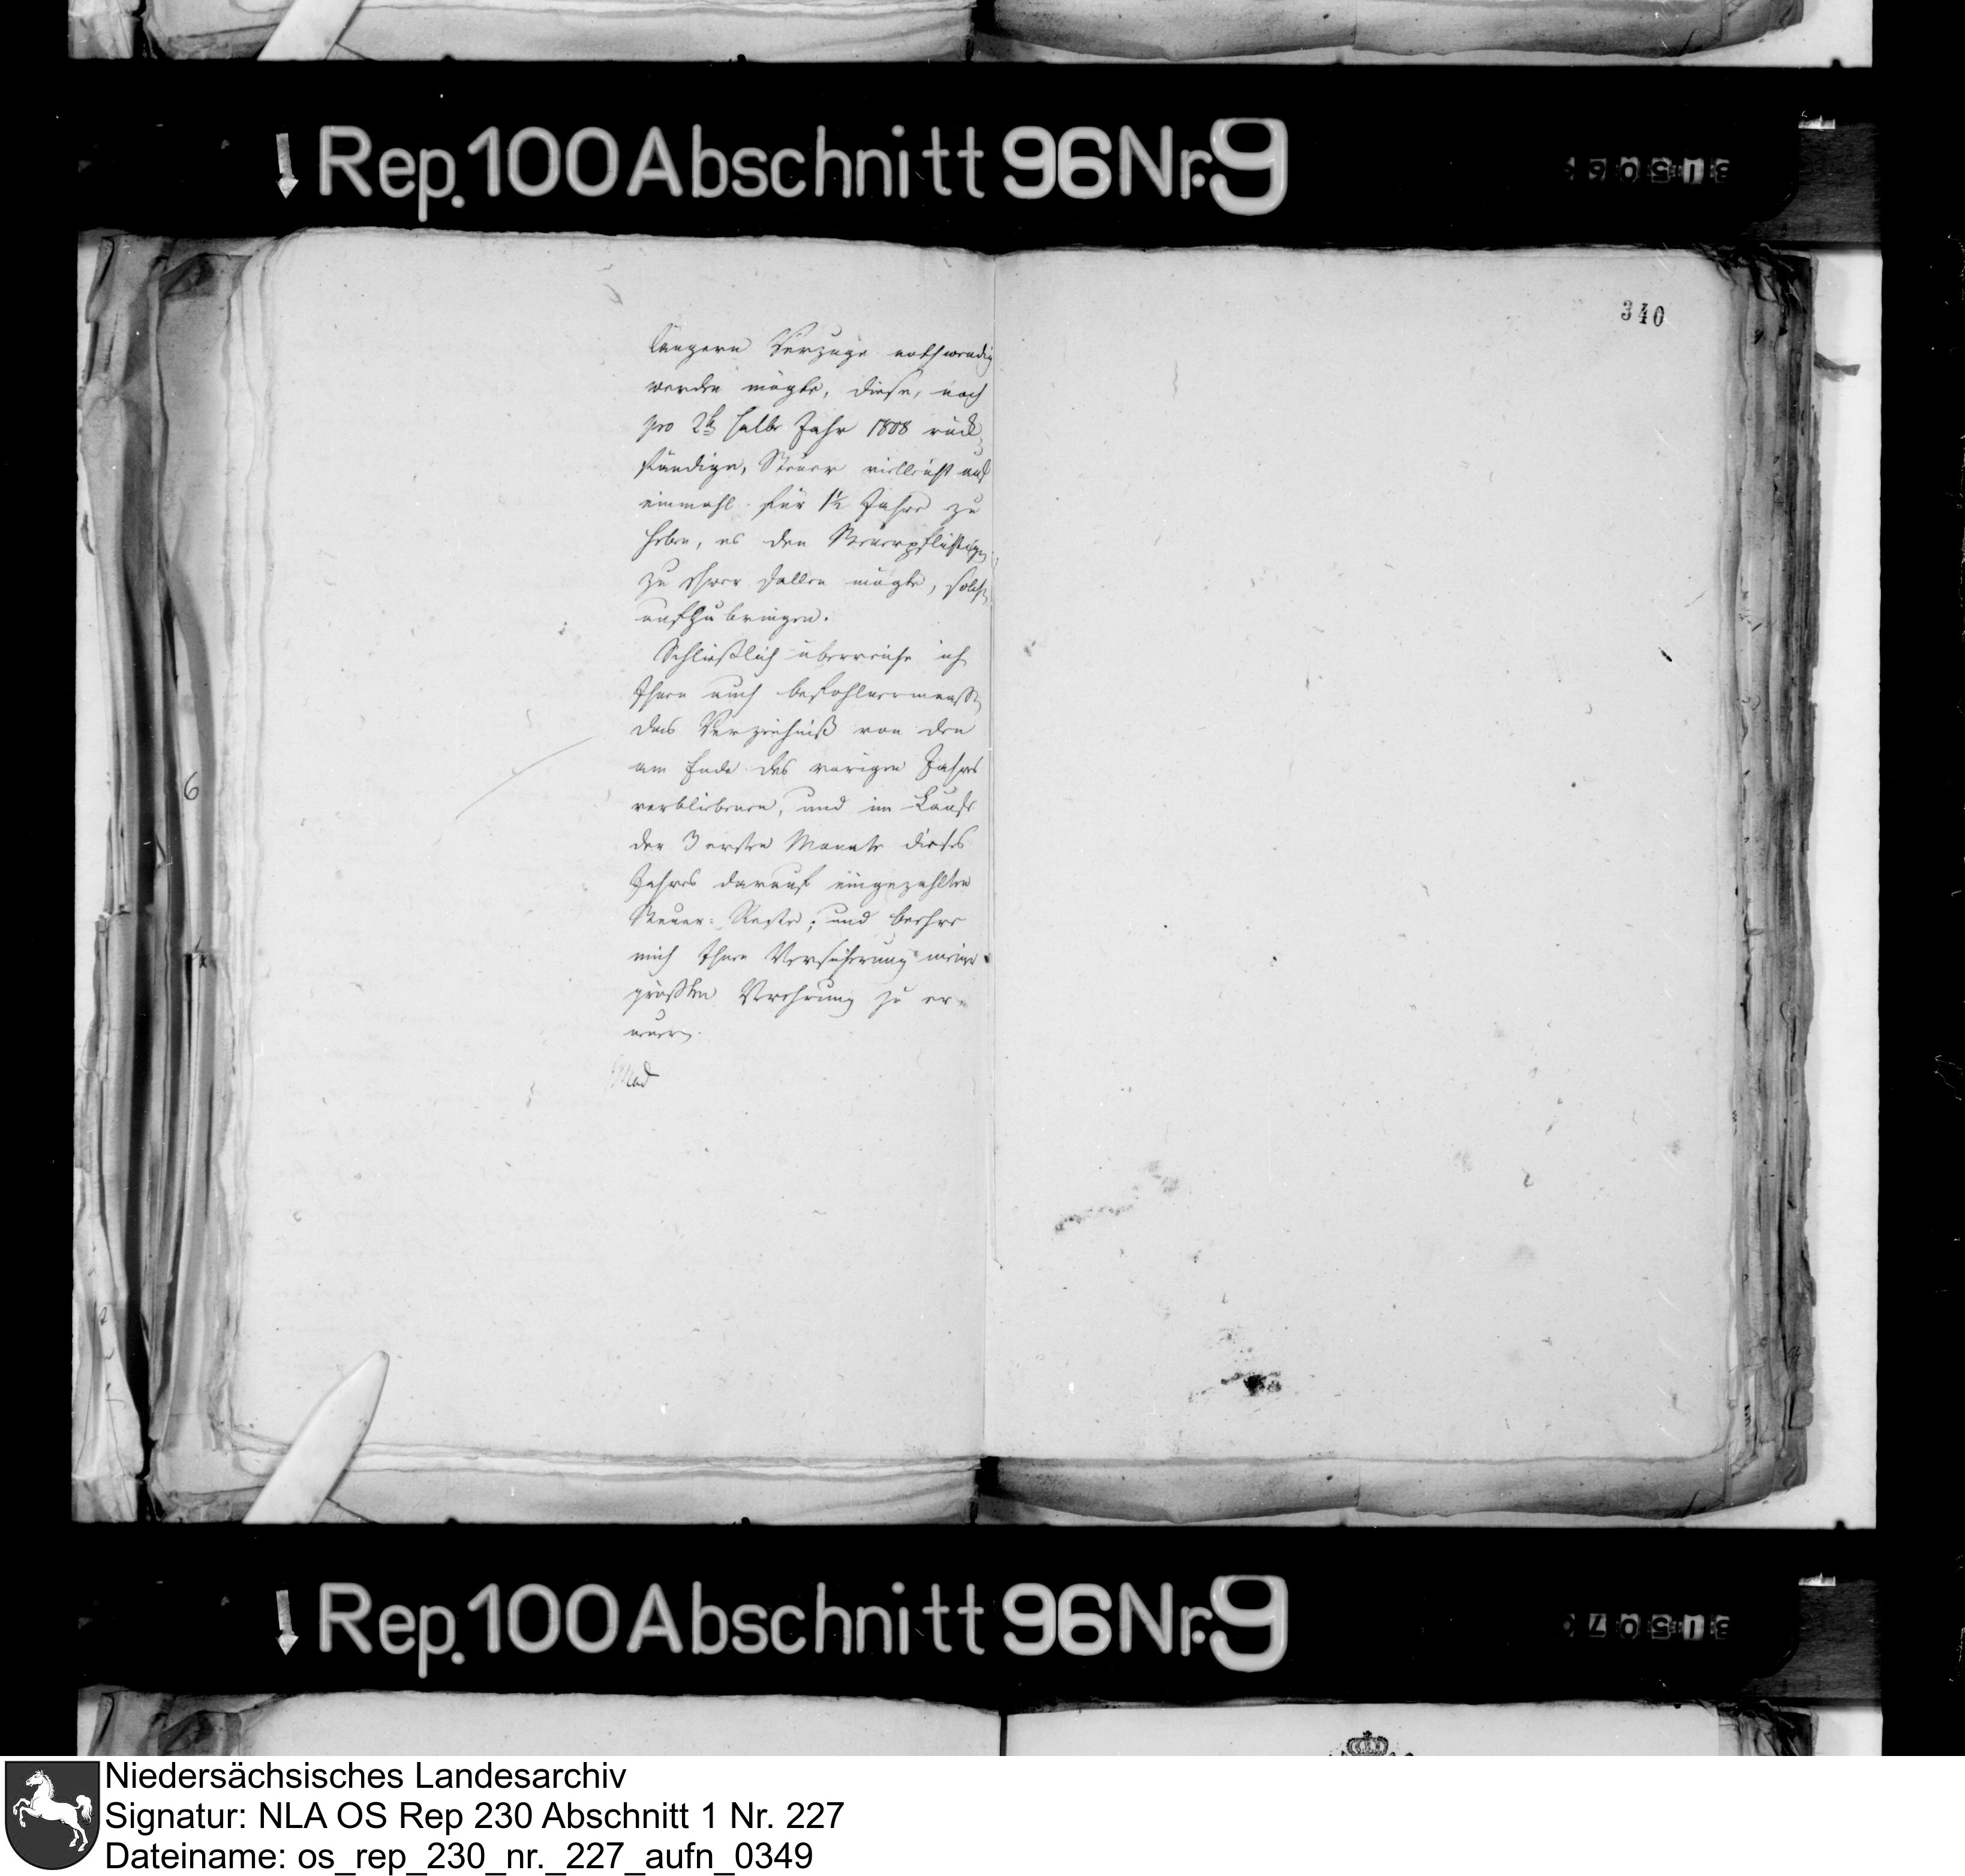 Rep. 100 Abschnitt 96 Nr. 9
31506
340
längern Verzuge nothwendig
werden mögte, diese, noch
pro 2te halbe Jahr 1808 rück-
ständige, Steuer vielleicht auf
einmahl für 1½ Jahre zu
heben, es den Steuerpflichtigen
zu schwer fallen mögte, solche
aufzubringen.
Schließlich überreiche ich
Ihnen auch befohlnermaßen
das Verzeichniß von den
am Ende des vorigen Jahrs
verbliebenen, und im Laufe
der 3 ersten Monate dieses
Jahres darauf eingezahlten
Steuer-Reste; und beehre
mich Ihnen Versicherung meiner
größten Verehrung zu er-
neuern.
6
Rep. 100 Abschnitt 96 Nr. 9
31507
Niedersächsisches Landesarchiv
Signatur: NLA OS Rep 230 Abschnitt 1 Nr. 227
Dateiname: os_rep_230_nr._227_aufn_0349